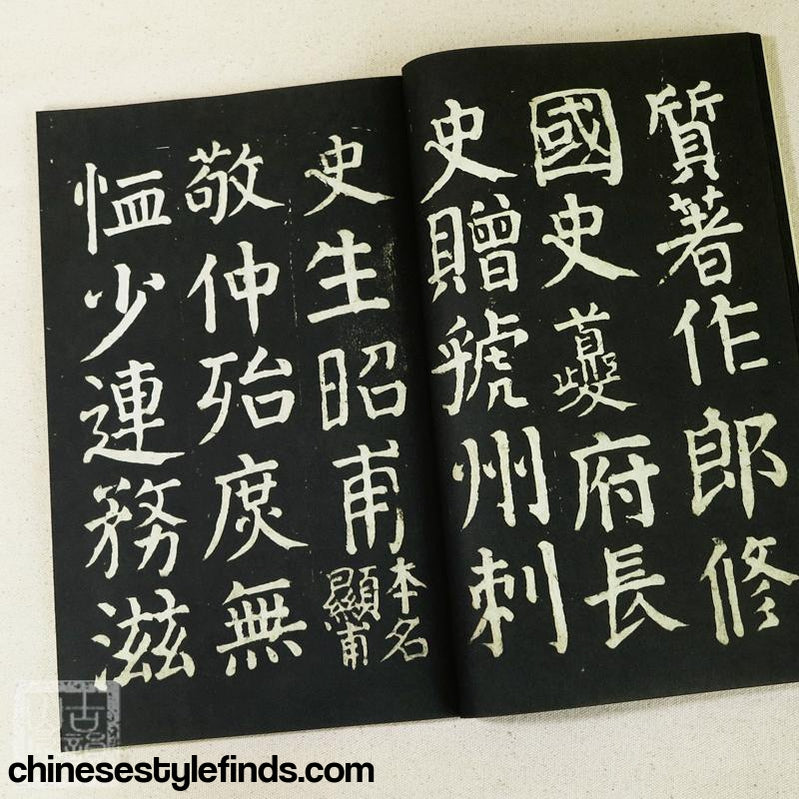 質著作郎修
國史夔府長
史贈虢州刺
史生昭甫本名
顯甫
敬仲殆庶無
恤少連務滋
chinesestylefinds.com